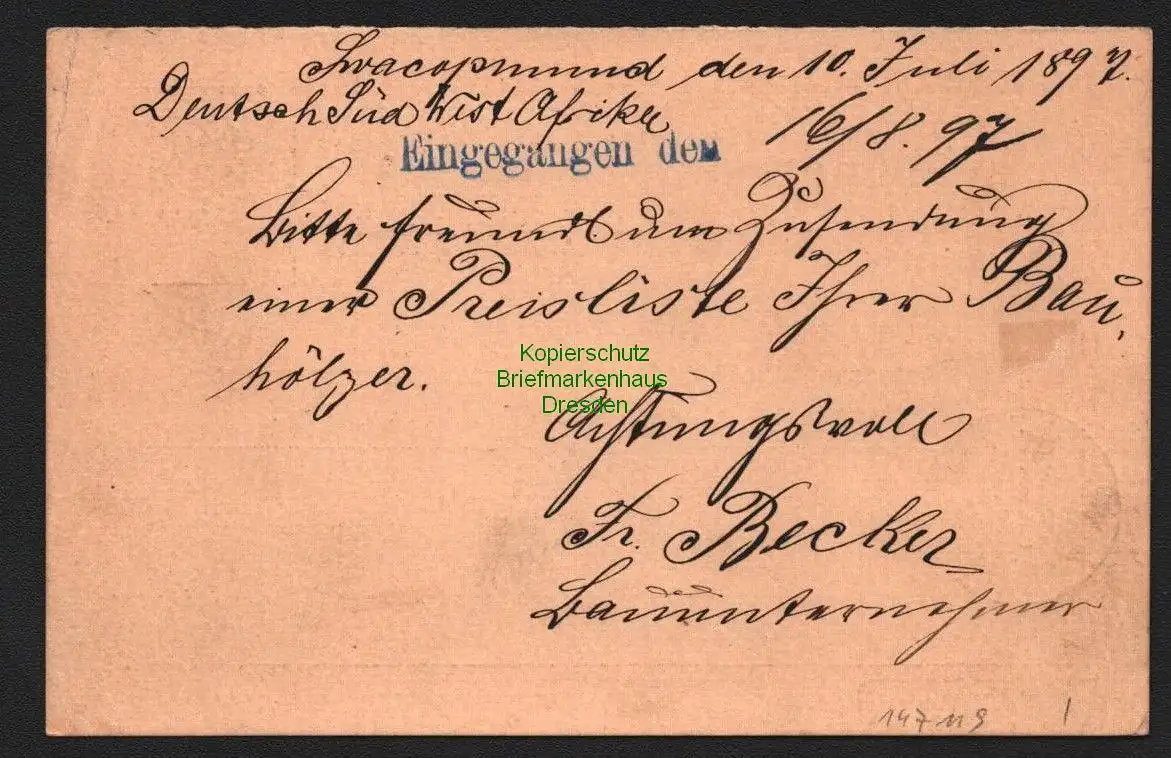 Swacopmund den 10. Juli 1897.
Deutsch Süd West Afrika
16/8. 97
Eingegangen den
Bitte freundl um Zusendung
einer Preisliste Ihrer Bau,
hölzer.
Kopierschutz
Briefmarkenhaus
Dresden
Achtungsvoll
Fr. Becker
Bauunternehmer
147 119